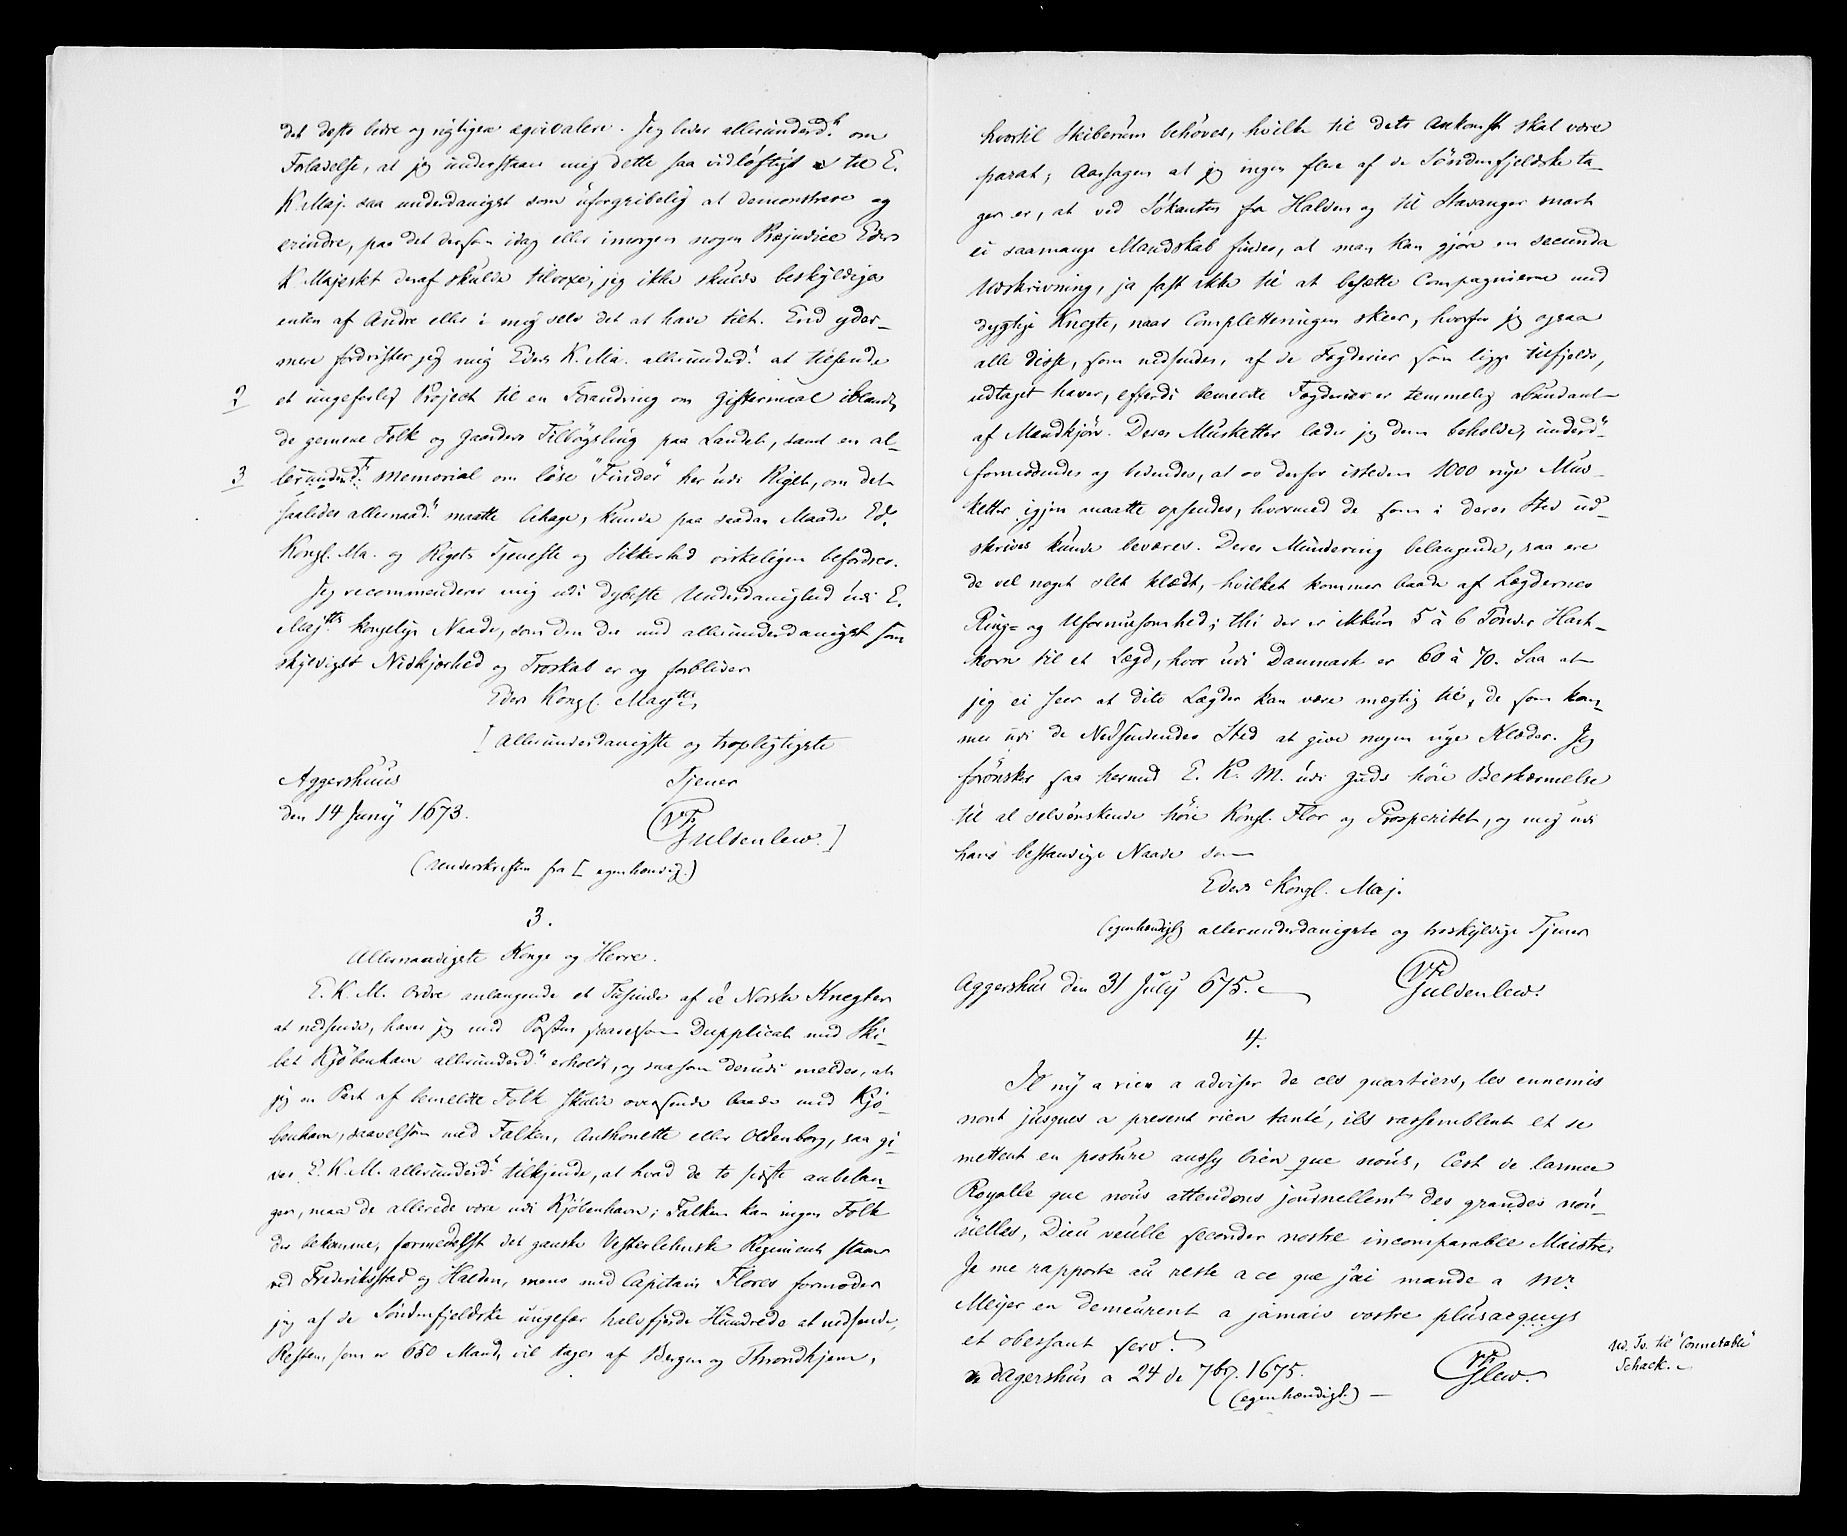 det desto bedre og rigtigere æqvivalere. Jeg beder allerunderd. om
Forladelse, at jeg understaaer mig dette saa vidløftigt til E.
K. Maj. saa underdanigst som uforgribelig at demonstrere og
erindre, paa det dersom idag eller imorgen nogen Præjudice Eders
K Majestet deraf skulde tilvoxe, jeg ikke skulde beskyldiges
enten af Andre eller i mig selv det at have tiet. End yder-
mere fordrister jeg mig Eders K. Ma. allerunderd. at tilsende
2 et ungeferlig Project til en Forandring om Giftermaal iblandt
de gemene Folk og Gaarders Tilbøgsling paa Landet, samt en al-
3 lerunderd. Memorial om løse "Finder" her udi Riget, om det
saaledes allernaad. maatte behage, kunde paa saadan Maade Ed.
Kongl. Ma. og Rigets Tjeneste og Sikkerhed virkeligen befordres.
Jeg recommenderer mig udi dybeste Underdanighed udi E.
Majtts kongelige Naade, som den der med allerunderdanigst som
skyldigst Nidkjærhed og Troskab er og forbliver
Eders Kongl. Maytts
[Allerunderdanigste og tropligtigste
Aggershuus Tjener
den 14 Junij 1673. VF
Guldenlew.]
(Underskriften fra [ egenhændig.)
3.
Allernaadigste Konge og Herre.
E. K. M. Ordre anlangende et Tusinde af de Norske Knegter
at nedsende, haver jeg med Posten saavelsom Dupplicat med Ski-
bet Kjøbenhavn allerunderd. erholdt, og saasom derudi meldes, at
jeg en Part af bemeldte Folk skulde oversende baade med Kjø-
benhavn, saavelsom med Falken, Anthonette eller Oldenborg, saa gi-
ver E. K. M. allerunderd. tilkjende, at hvad de to sidste anbelan-
ger, maa de allerede være udi Kjøbenhavn; Falken kan ingen Folk
der bekomme, formedelst det ganske Vesterlehnske Regiment staaer
ved Frederiksstad og Halden, mens med Capitain Flores formoder
jeg af de Søndenfjeldske ungefær halvfjerde Hundrede at nedsende,
Resten som er 650 Mand, vil tages af Bergen og Throndhjem,
hvortil Skiberum behøves, hvilke til dets Ankomst skal være
parat; Aarsagen at jeg ingen flere af de Søndenfjeldske ta-
ger er, at ved Søkanten fra Halden og til Stavanger snart
ei saamange Mandskab findes, at man kan gjøre en secunda
Udskrivning, ja fast ikke til at besætte Compagnierne med
dygtige Knegte, naar Completteringen skeer, hvorfor jeg ogsaa
alle disse, som nedsendes, af de Fogderier som ligge tilfjelds,
udtaget haver, efterdi bemeldte Fogderier er temmelig abundant
af Mandkjøn. Deres Musketter lader jeg dem beholde, underd.
formodendes og bedendes, at der derfor isteden 1000 nye Mus-
ketter igjen maatte opsendes, hvormed de som i deres Sted ud-
skrives kunde beværes. Deres Mundering belangende, saa ere
de vel noget slet klædt, hvilket kommer baade af Lægdernes
Ring- og Uformuesomhed; thi der er ikkun 5 à 6 Tønder Hart-
korn til et Lægd, hvor udi Danmark er 60 à 70. Saa at
jeg ei seer at dito Lægder kan være mægtig til, de som kom-
mer udi de Nedsendendes Sted at give nogen nye Klæder. Jeg
førønsker saa hermed E. K. M. udi Guds høie Beskærmelse
til al selvønskende høie Kongl. Flor og Prosperitet, og mig udi
hans bestandige Naade som
Eders Kongl. Maj.
(egenhændigt) allerunderdanigste og troskyldige Tjener
Aggershus den 31 July 675. VF
Guldenlew.
4.
Il ny a rien a adviser de ces quartiers, les ennemis
nont jusques a present rien tanté, ils rassemblent et se
mettent en posture aussy bien que nous, Cest de larmee
Royalle que nous attendons journellemt des grandes nou-
uelles, Dieu veulle seconder nostre incomparable Maistre.
Je me rapporte au reste a ce que j'ai mande a Mr
Meijer en demeurent a jamais vostre plusacquys
et obessant serv.
dagershus a 24 de 7br. 1675. VF
Glew.
(egenhændigt.)
Ud. Tv. til "Connetable"
Schack.